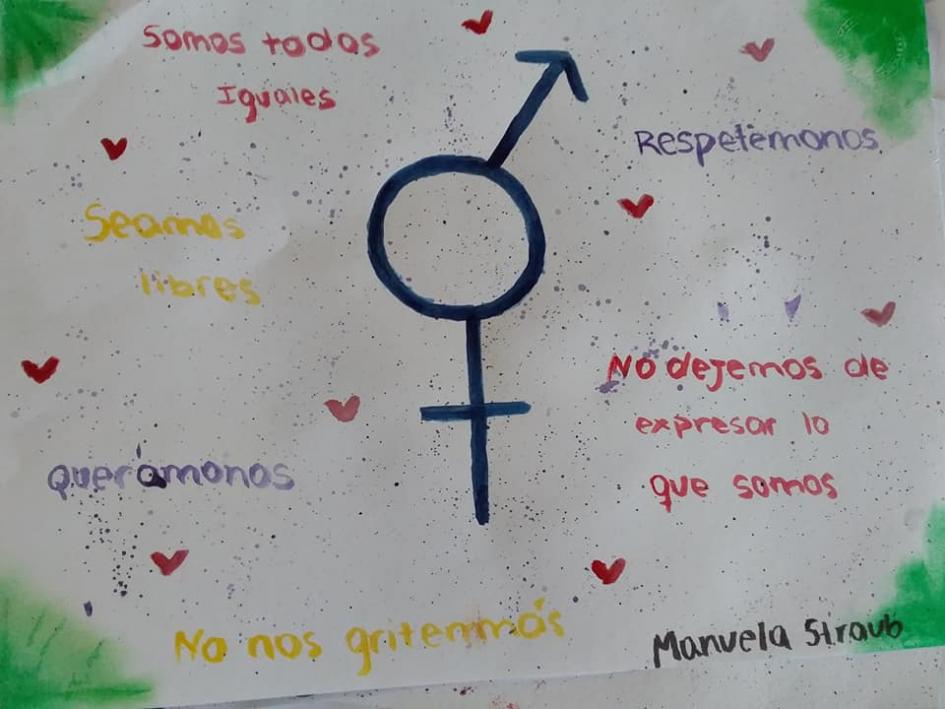 Somos todos
Iguales
Respetémonos
Seamos
libres
No dejemos de
expresar lo
que somos
Querámonos
No nos griten más
Manuela Straub